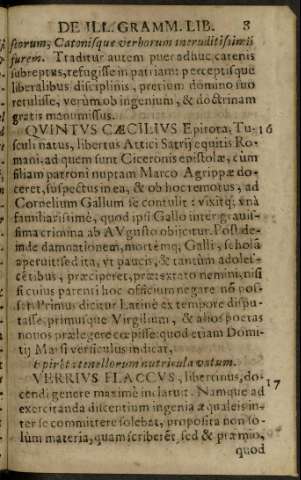 DE ILL. GRAMM. LIB. 8
seorum, Catonisque verborum ineruditissimi
furem. Traditur autem puer adhuc catenis
subreptus, refugisse in patriam: perceptisque
liberalibus disciplinis, pretium domino suo
retulisse, verùm ob ingenium, & doctrinam
gratis manumissus.
QVINTVS CÆCILIVS Epirota, Tu- 16
sculi natus, libertus Attici Satrij equitis Ro-
mani, ad quem sunt Ciceronis epistolæ, cùm
filiam patroni nuptam Marco Agrippæ do-
ceret, suspectus in ea, & ob hoc remotus, ad
Cornelium Gallum se contulit: vixitq; vnà
familiarissimè, quod ipsi Gallo inter grauis-
sima crimina ab AVgusto obijcitur. Post de-
inde damnationem, mortémq; Galli, scholã
aperuit: sed ita, vt paucis, & tantùm adoles-
cẽtibus, præciperet, prætextato nemini, nisi
si cuius parenti hoc officium negare nõ pos-
set. Primus dicitur Latinè ex tempore dispu-
tasse, primusque Virgilium, & alios poetas
nouos prælegere cœpisse: quod etiam Domi-
tij Marsi versiculus indicat.
Epirota tenellorum nutricula vatum.
VERRIVS FLACCVS, libertinus, do- 17
cendi genere maximè inclaruit. Namque ad
exercitanda discentium ingenia æquales in-
ter se committere solebat, proposita non so-
lùm materia, quam scriberẽt, sed & præmio,
quod